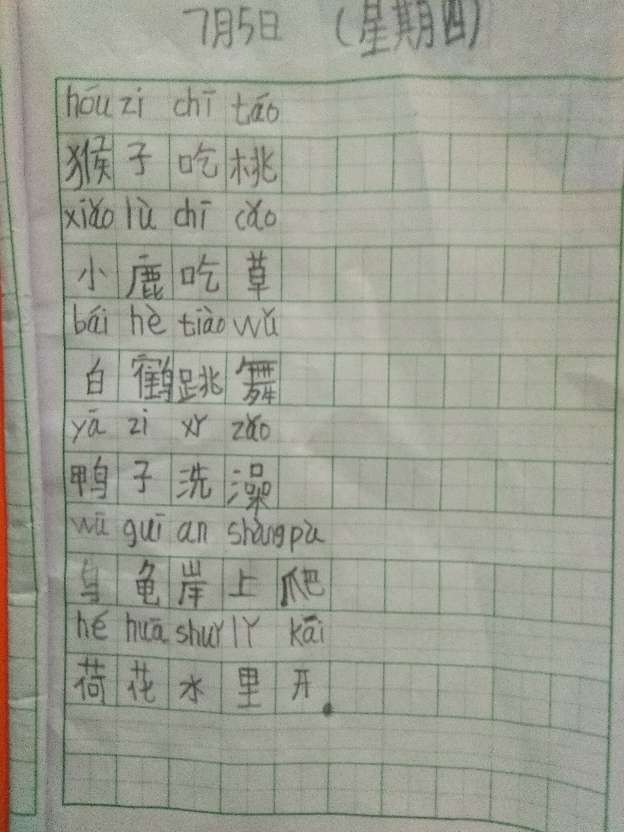 7月5日 (星期四)
hóu zi chī táo
猴子吃桃
xiǎo lù chī cǎo
小鹿吃草
bái hè tiào wǔ
白鹤跳舞
yā zi xǐ zǎo
鸭子洗澡
wū guī àn shàng pá
乌龟岸上爬
hé huā shuǐ lǐ kāi
荷花水里开